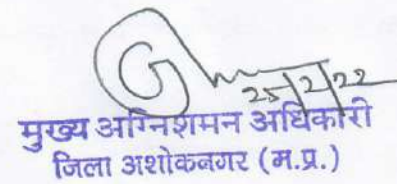 25/2/22
मुख्य अग्निशमन अधिकारी
जिला अशोकनगर (म.प्र.)